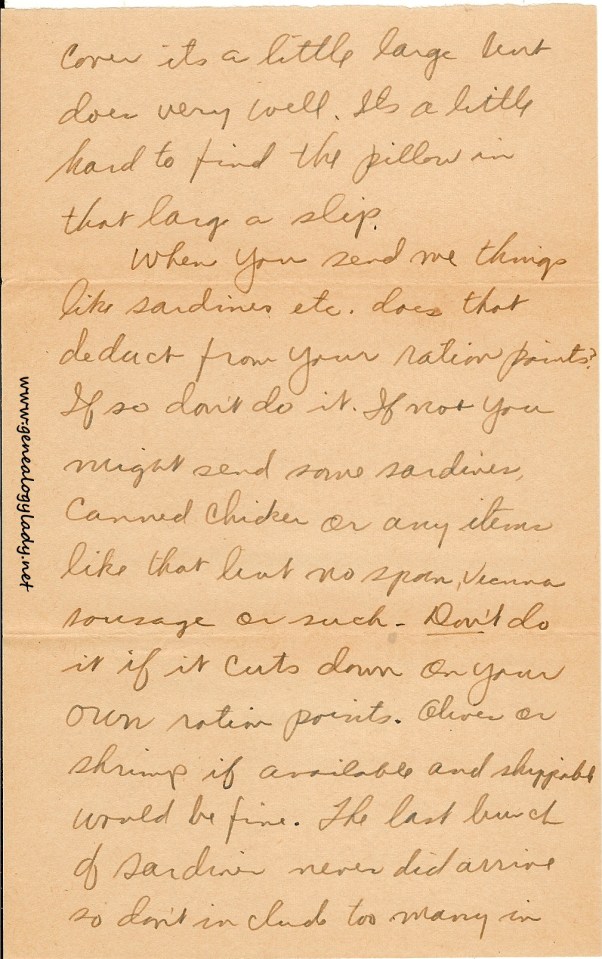 cover its a little large but
does very well. Its a little
hard to find the pillow in
that large a slip.
When you send me things
like sardines etc. does that
deduct from your ration points?
If so don't do it. If not you
might send some sardines,
canned chicken or any items
like that but no spam, vienna
sausage or such - Don't do
it if it cuts down on your
own ration points. Olives or
shrimp if available and shippable
would be fine. The last bunch
of sardines never did arrive
so don't include too many in
www.genealogylady.net